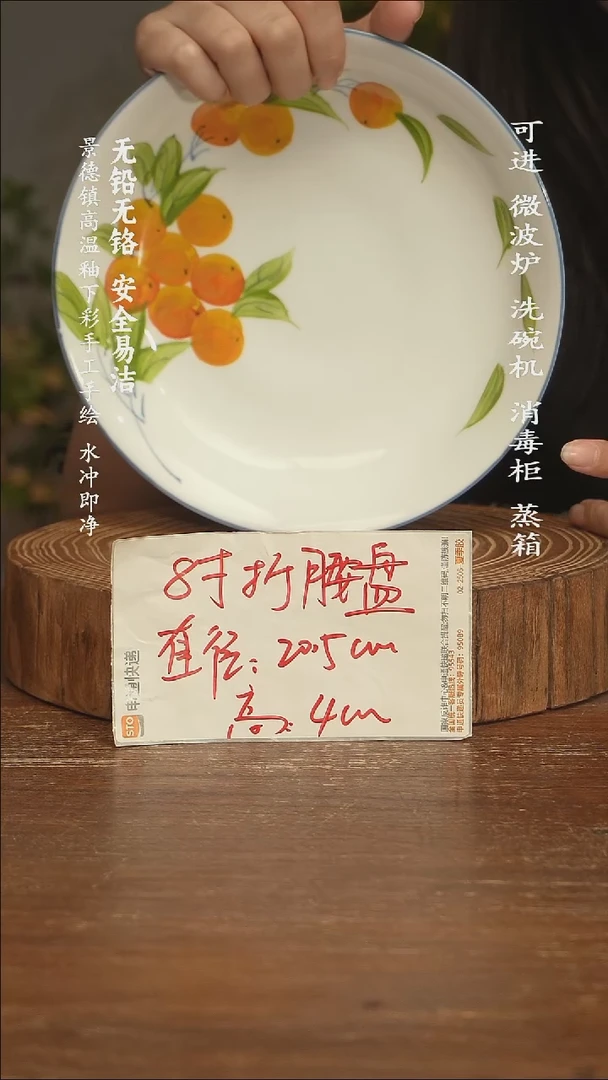 可进 微波炉 洗碗机 消毒柜 蒸箱
无铅无铬 安全易洁
景德镇高温釉下彩手工手绘 水冲即净
8寸折腰盘
直径：20.5cm
高：4cm
STO